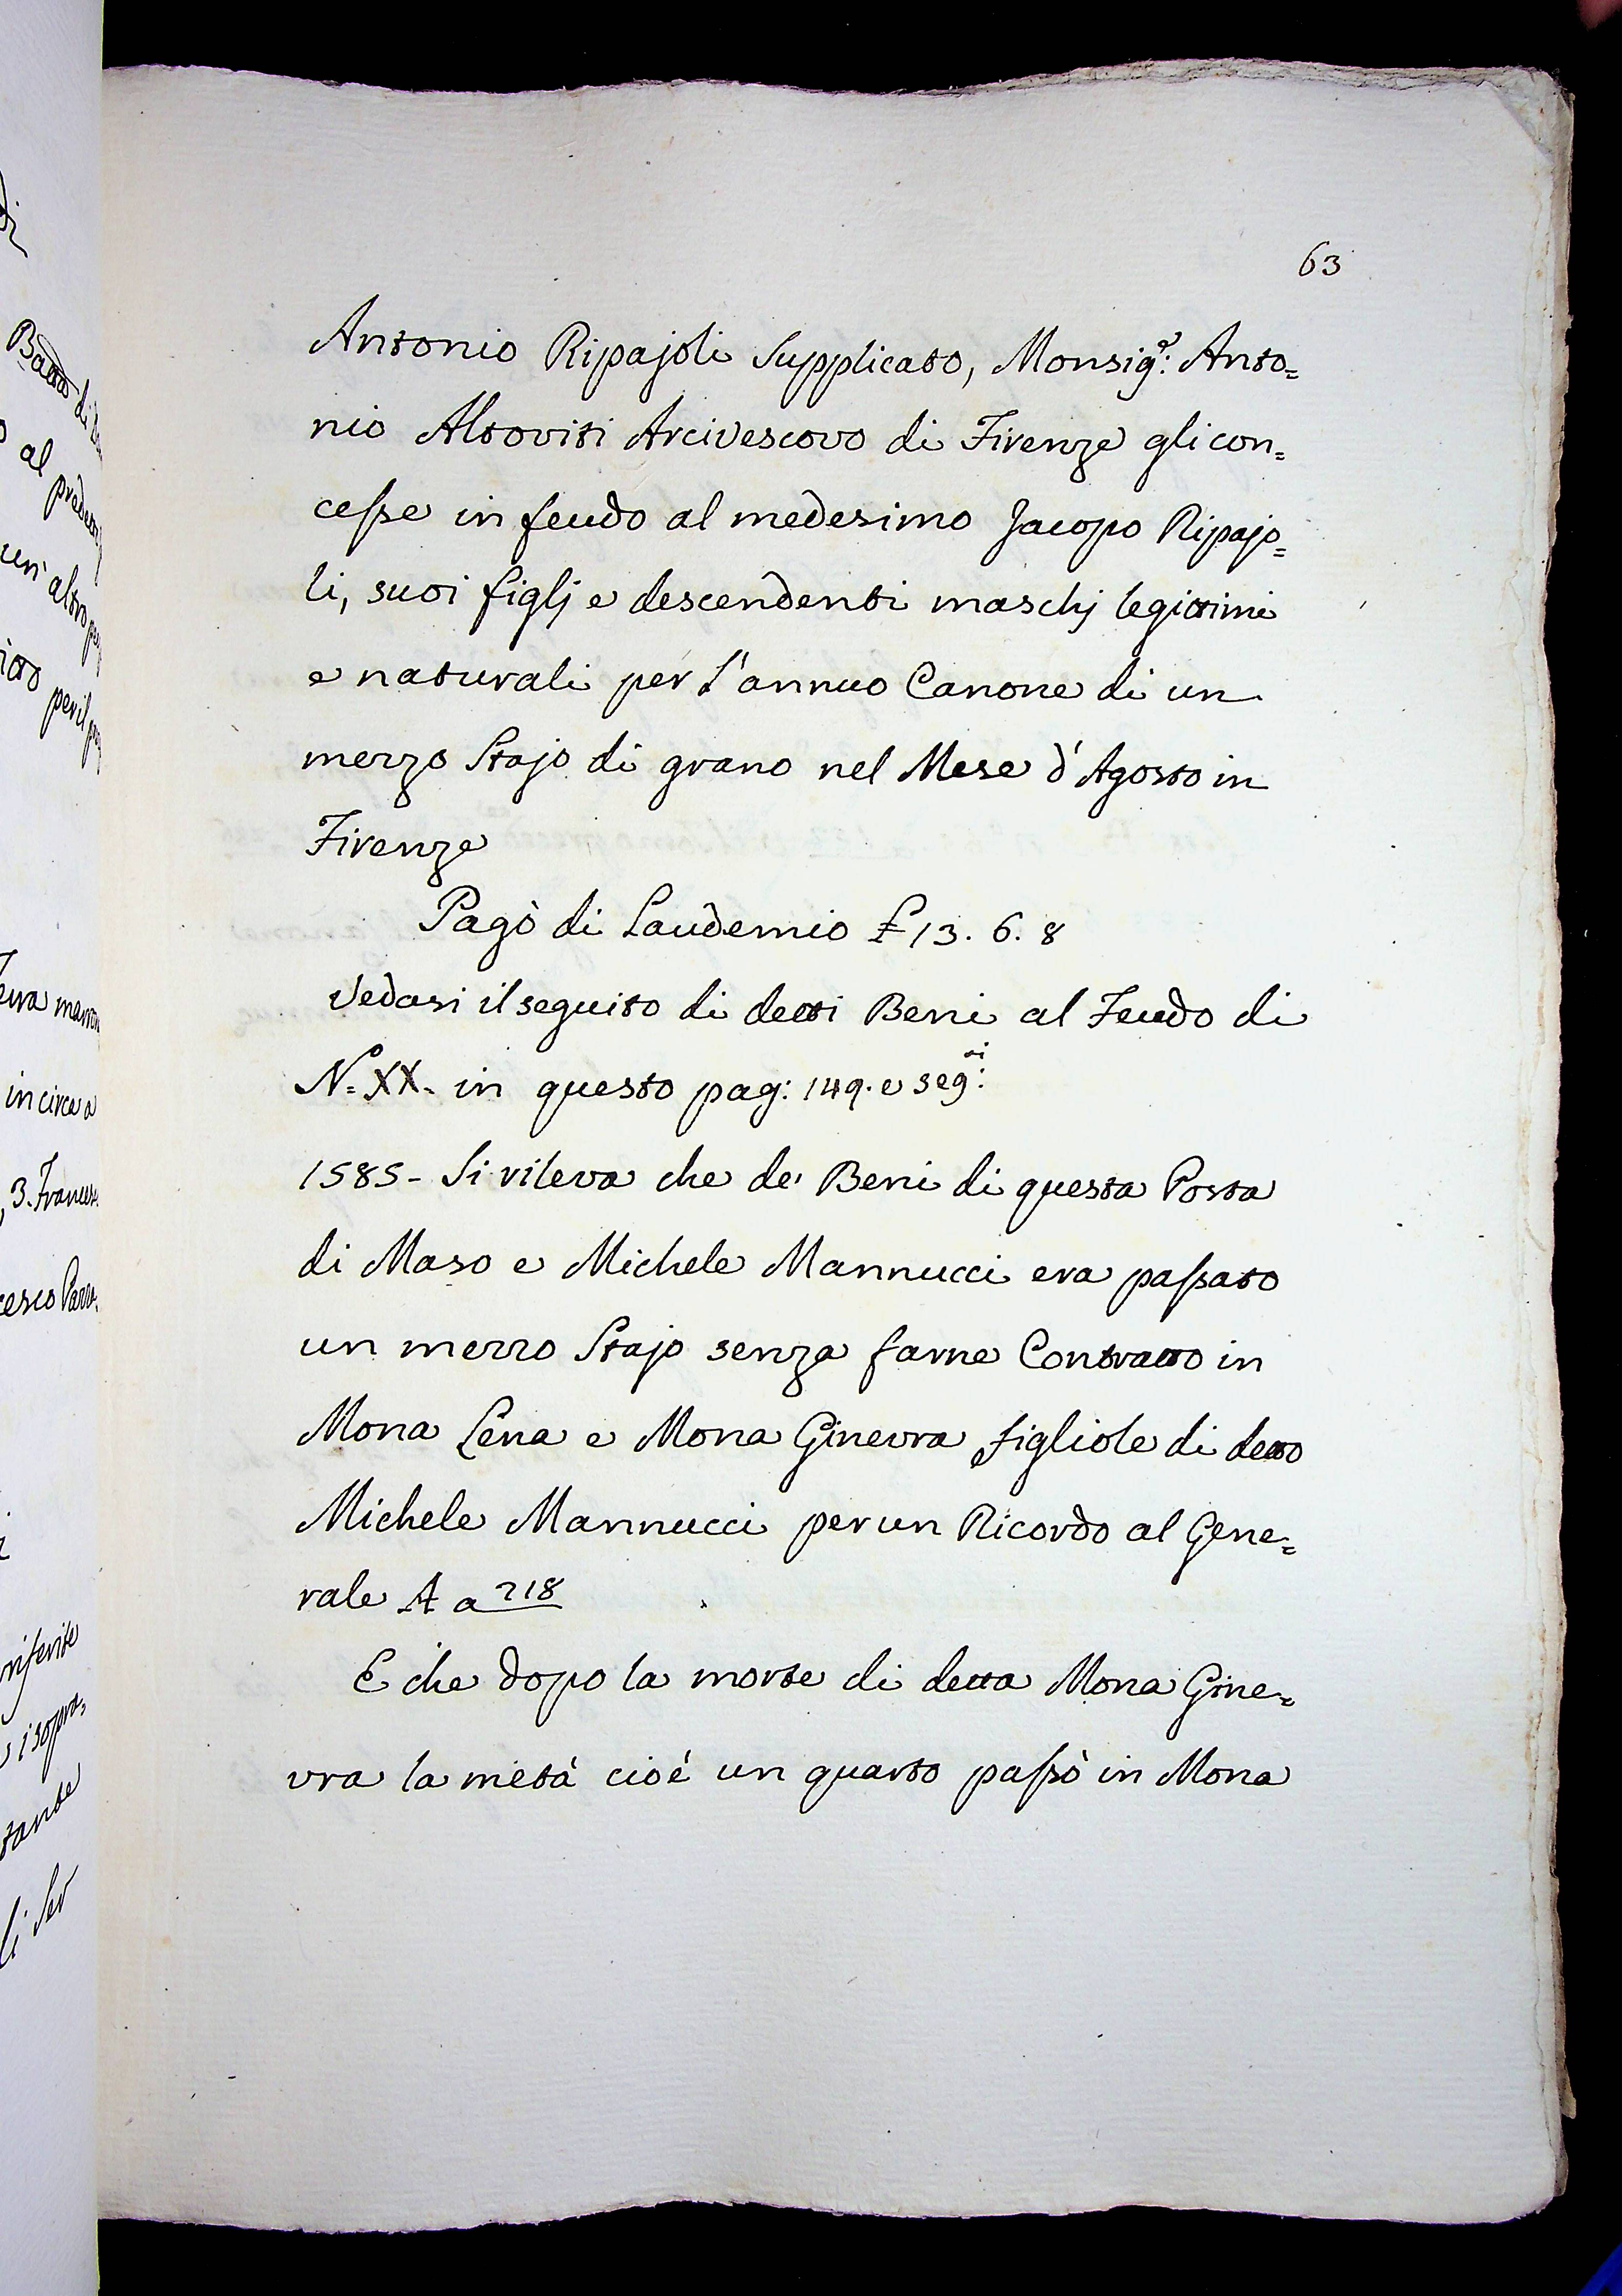 63
Antonio Ripajoli Supplicato, Monsig.e: Anto=
nio Altoviti Arcivescovo di Firenze gli con=
cesse in feudo al medesimo Jacopo Ripajo=
li, suoi figlj e descendenti maschj legittimi
e naturali per l'annuo Canone di un
mezzo Stajo di grano nel Mese d'Agosto in
Firenze
Pagò di Laudemio £ 13. 6. 8
Vedasi il seguito di detti Beni al Feudo di
N.o XX. in questo pag: 149. e seg.ti:
1585 - Si rileva che de' Beni di questa Posta
di Maso e Michele Mannucci era passato
un mezzo Stajo senza farne Contratto in
Mona Lena e Mona Ginevra figliole di detto
Michele Mannucci per un Ricordo al Gene=
rale A a 218
E che dopo la morte di detta Mona Gine=
vra la metà cioé un quarto passò in Mona
al
3. Frances
in circa a